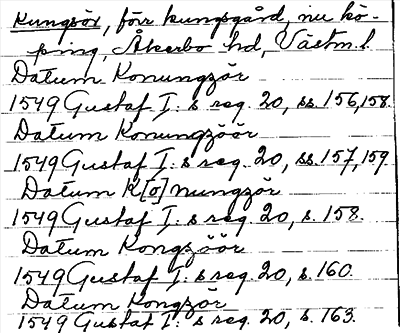 Kungsör, förr kungsgård, nu kö-
ping, Åkerbo hd, Västm. l.
Datum Konungzör
1549 Gustaf I:s reg. 20, ss. 156, 158.
Datum Konungzöör
1549 Gustaf I:s reg. 20, ss. 157, 159
Datum K[o]nungzör
1549 Gustaf I:s reg. 20, s. 158.
Datum Kongzöör
1549 Gustaf I:s reg. 20, s. 160.
Datum Kongzör
1549 Gustaf I:s reg. 20, s. 163.